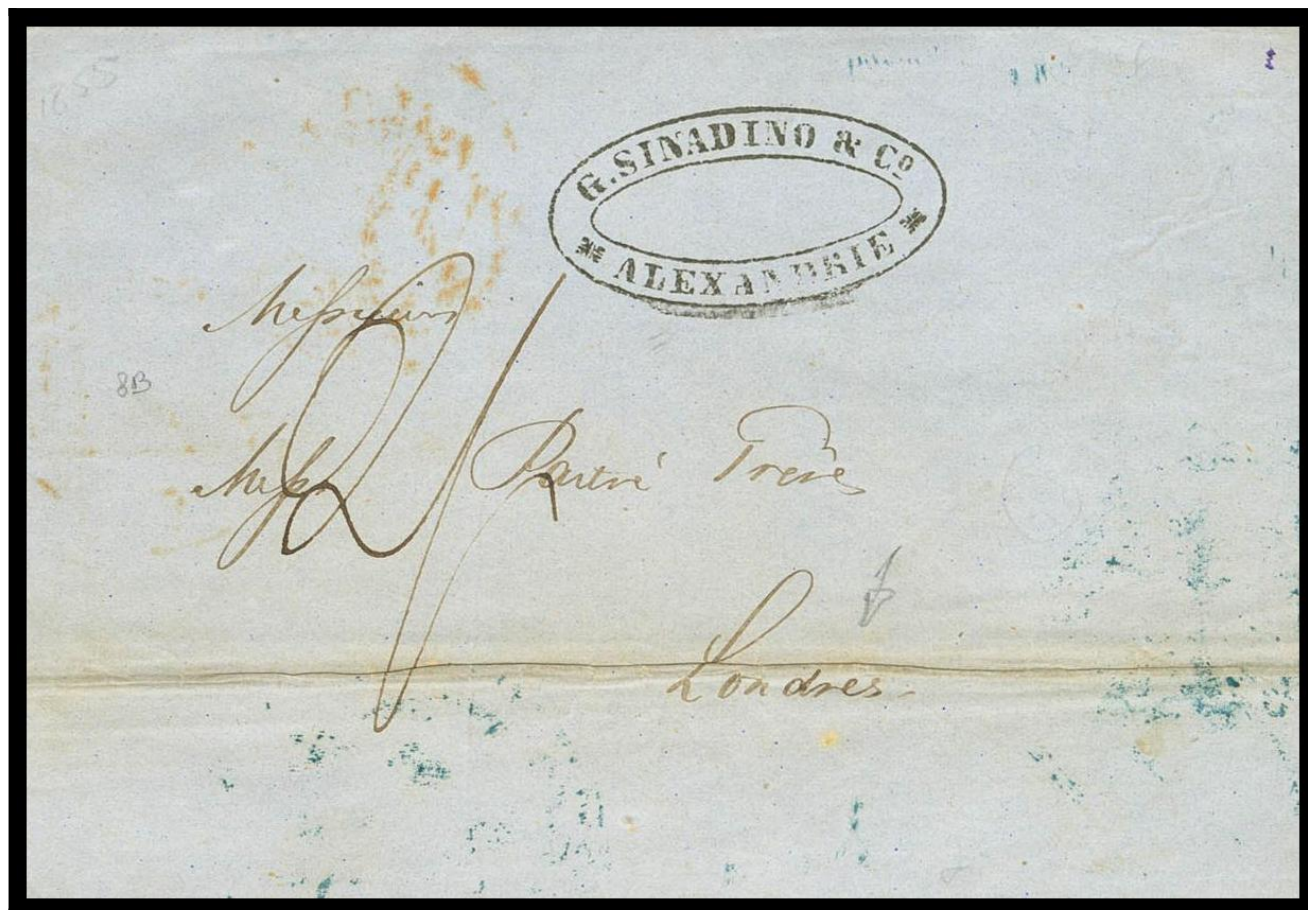 1855
G. SINADINO & Cº
* ALEXANDRIE *
Messieurs
8B
Mess Frères
Londres